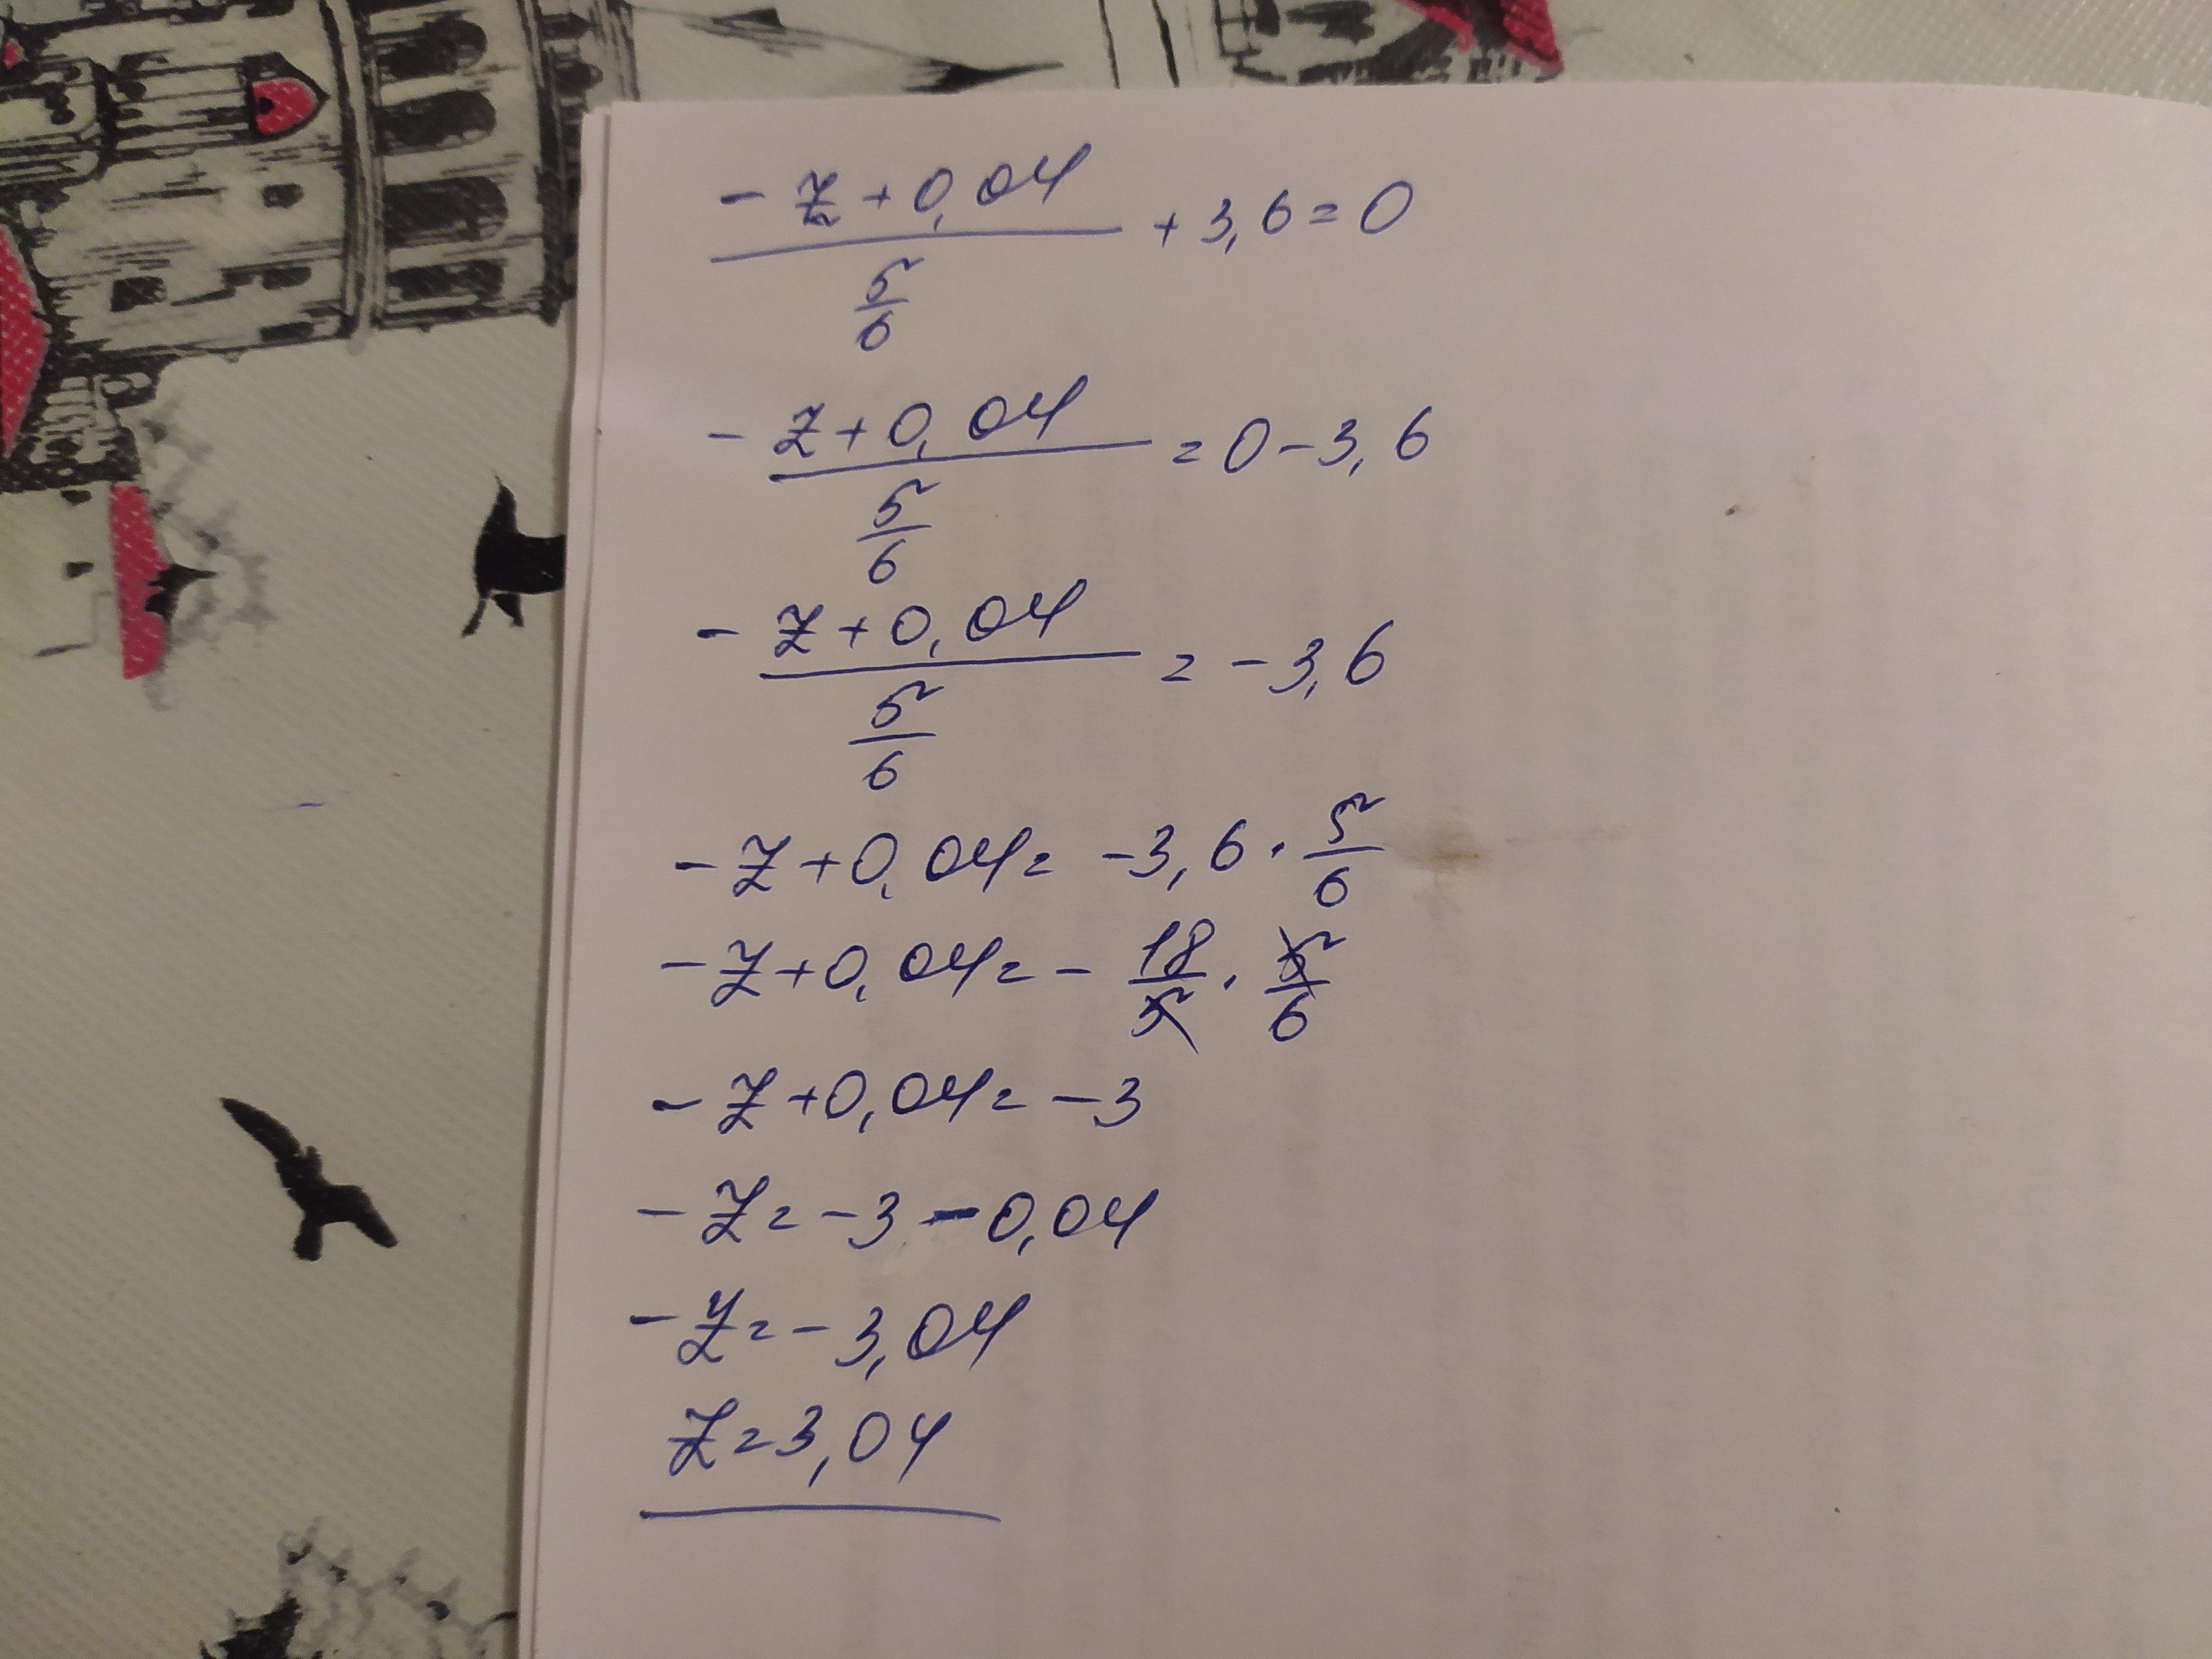 (-z+0,04)/(5/6) + 3,6=0
-(z+0,04)/(5/6) = 0-3,6
-(z+0,04)/(5/6) = -3,6
-z+0,04= -3,6·5/6
-z+0,04= - 18/5 · 5/6
-z+0,04= -3
-z= -3 -0,04
-z= -3,04
z=3,04